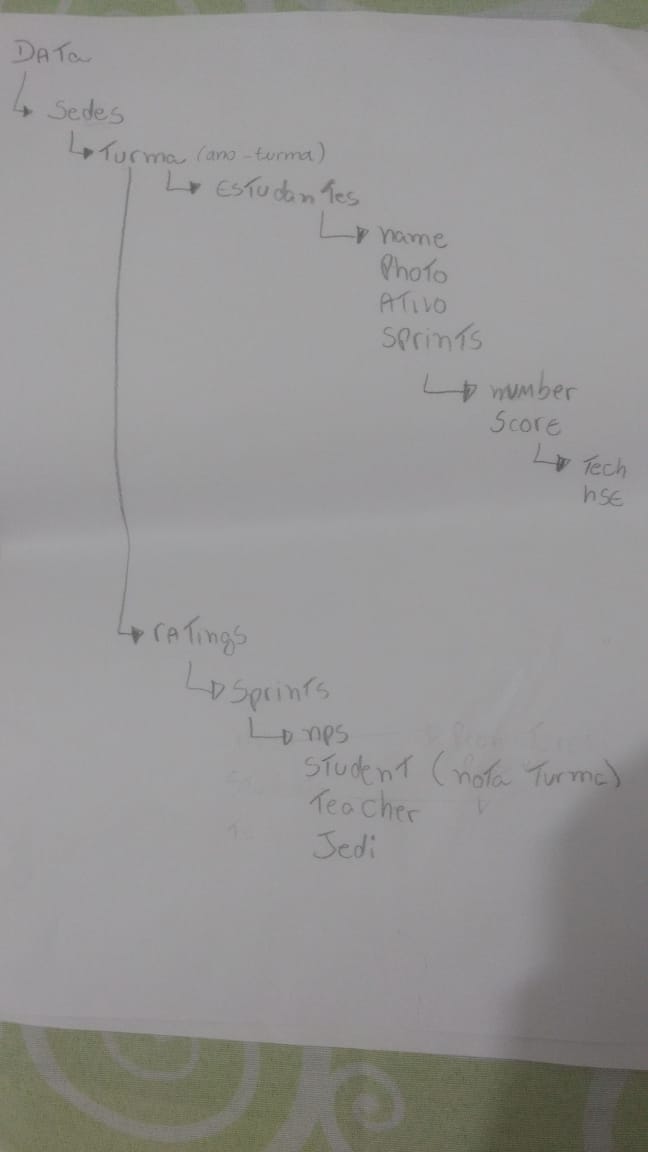 DATA
Sedes
Turma (ano-turma)
Estudantes
name
Photo
Ativo
Sprints
number
Score
Tech
hSE
ratings
Sprints
nps
Student (nota Turma)
Teacher
Jedi